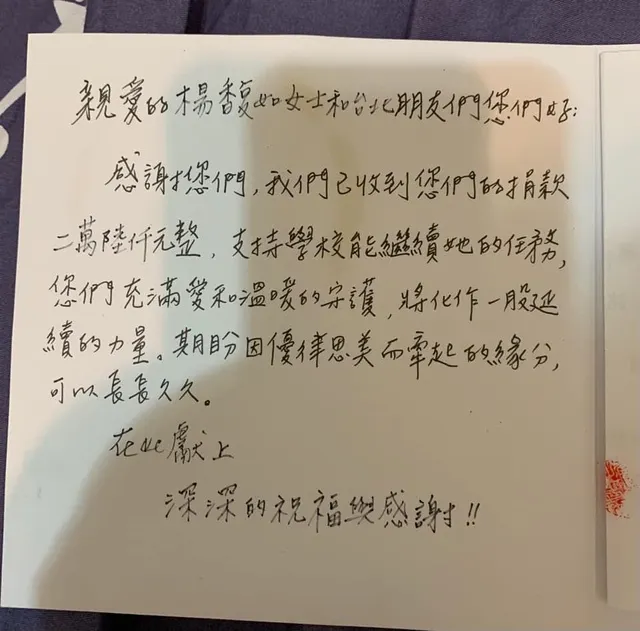 親愛的楊馥如女士和台北朋友們您們好:
感謝您們,我們已收到您們的捐款
二萬陸仟元整,支持學校能繼續她的任務,
您們充滿愛和溫暖的守護,將化作一股延
續的力量。期盼因優律思美而牽起的緣分,
可以長長久久。
在此獻上
深深的祝福與感謝!!